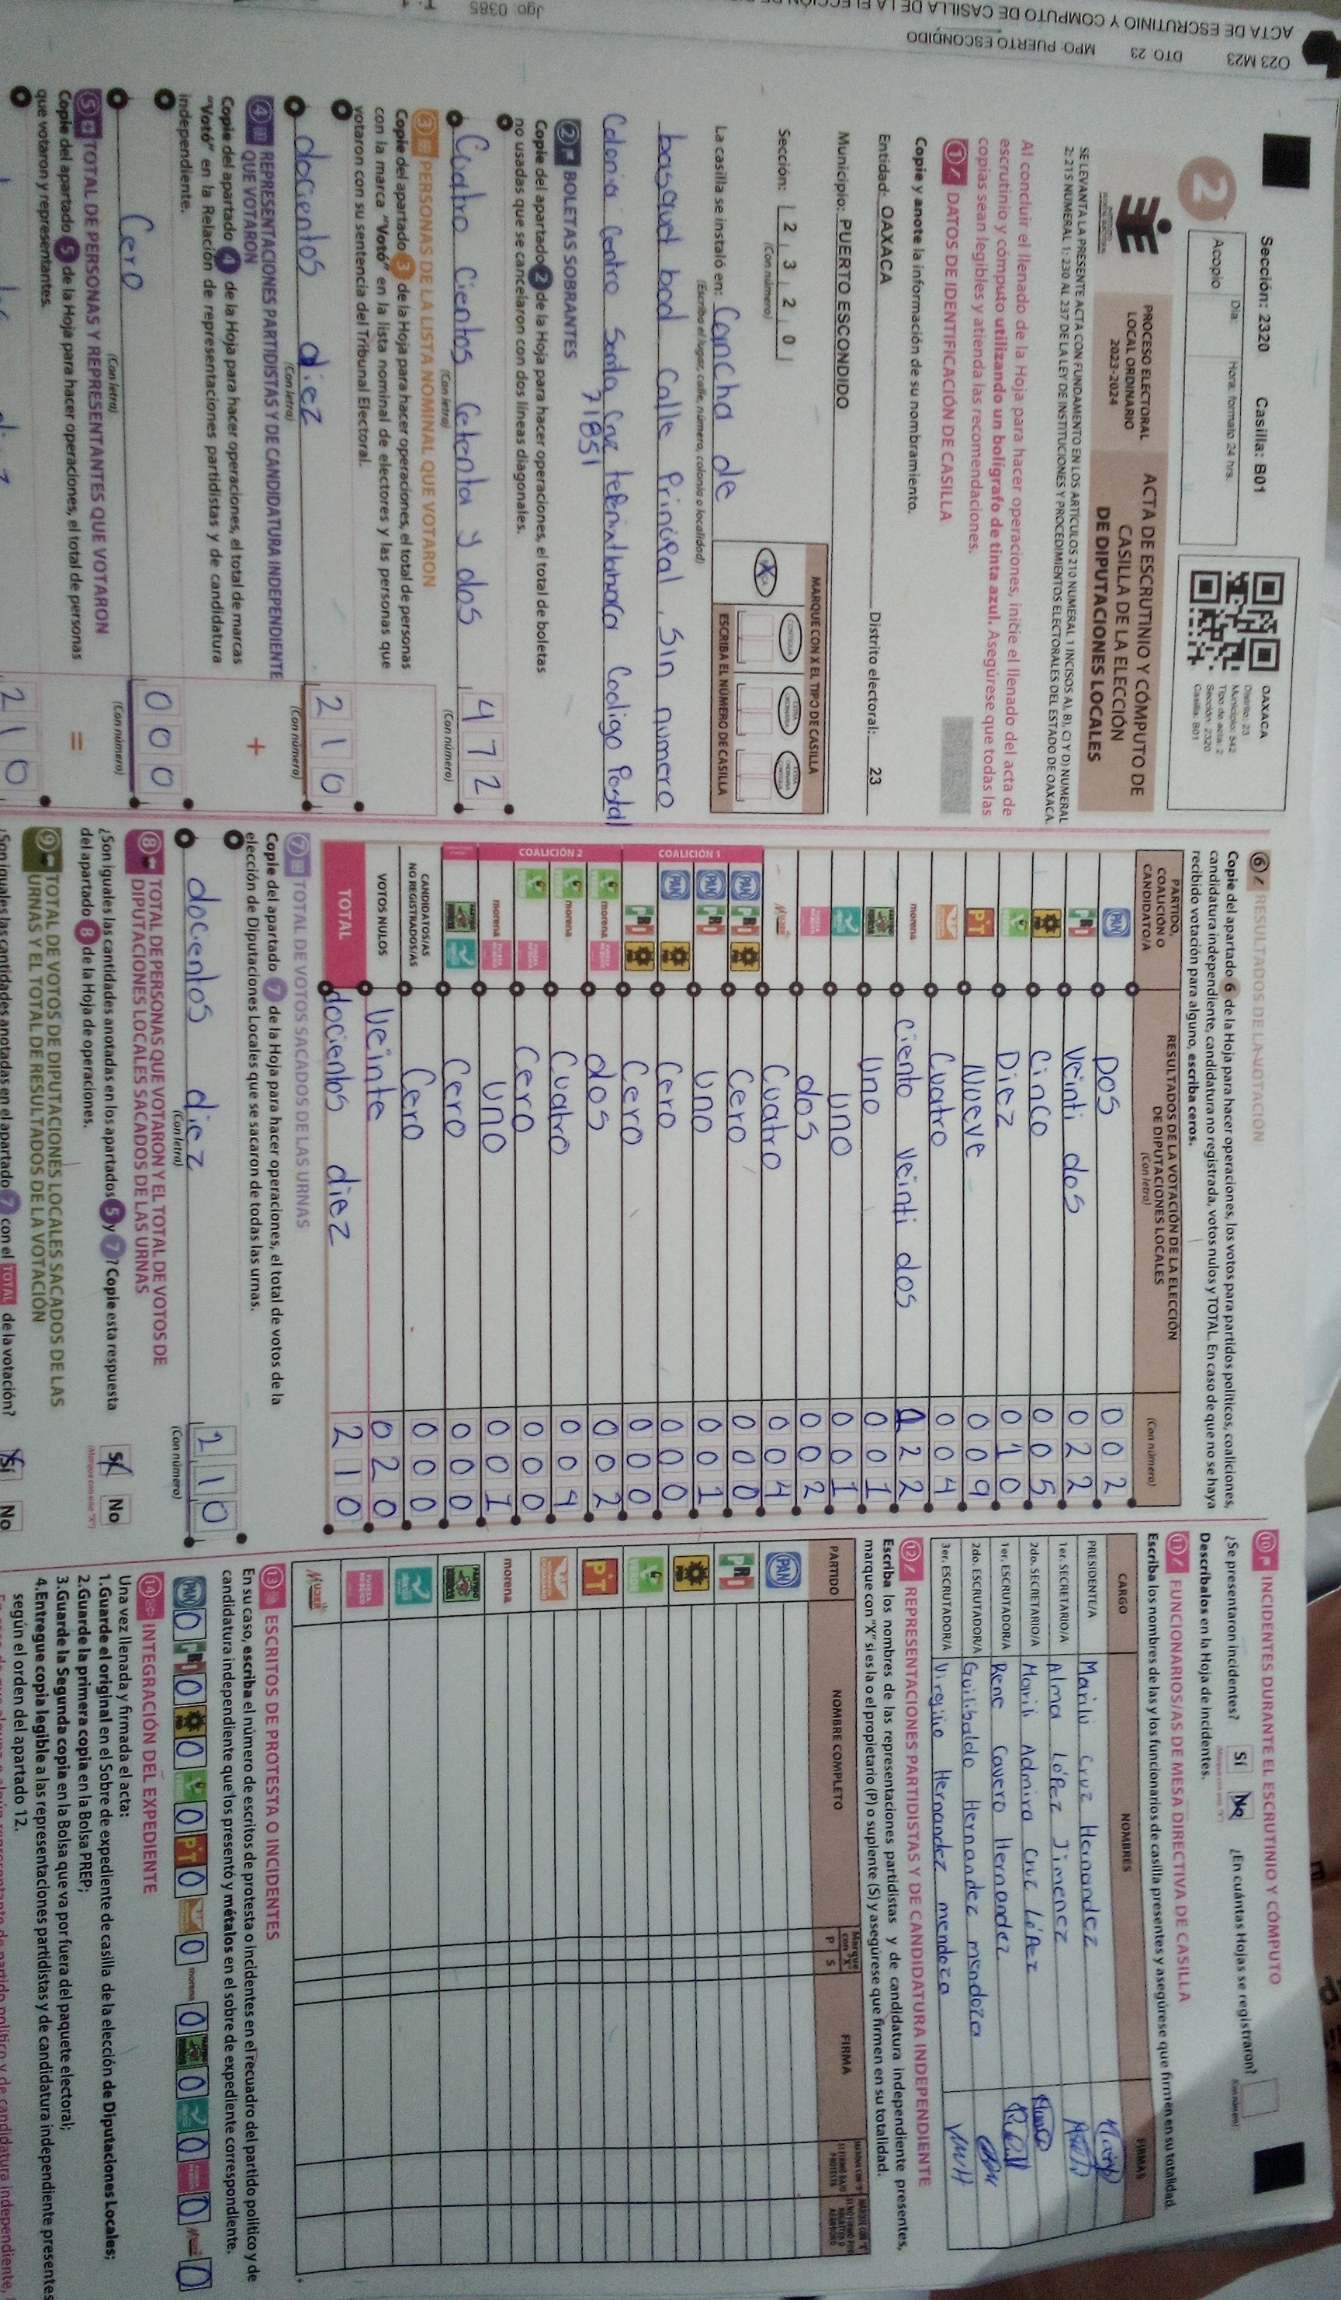 O23 M23 DTO 23 MPO PUERTO ESCONDIDO
Sección: 2320 Casilla: B01
2
Día:
Hora: formato 24 hrs.
Acopio
OAXACA
Distrito: 23
Municipio: 542
Tipo de acta: 2
Sección: 2320
Casilla: B01
PROCESO ELECTORAL
LOCAL ORDINARIO
2023-2024
ACTA DE ESCRUTINIO Y CÓMPUTO DE
CASILLA DE LA ELECCIÓN
DE DIPUTACIONES LOCALES
SE LEVANTA LA PRESENTE ACTA CON FUNDAMENTO EN LOS ARTÍCULOS 210 NUMERAL 1 INCISOS A), B), C) Y D) NUMERAL
2; 215 NUMERAL 1; 230 AL 237 DE LA LEY DE INSTITUCIONES Y PROCEDIMIENTOS ELECTORALES DEL ESTADO DE OAXACA.
Al concluir el llenado de la Hoja para hacer operaciones, inicie el llenado del acta de
escrutinio y cómputo utilizando un bolígrafo de tinta azul. Asegúrese que todas las
copias sean legibles y atienda las recomendaciones.
1 DATOS DE IDENTIFICACIÓN DE CASILLA
Copie y anote la información de su nombramiento.
Entidad: OAXACA Distrito electoral: 23
Municipio: PUERTO ESCONDIDO
Sección: 2 3 2 0
(Con número)
MARQUE CON X EL TIPO DE CASILLA
ESCRIBA EL NÚMERO DE CASILLA
La casilla se instaló en: Cancha de
(Escriba el lugar, calle, número, colonia o localidad)
basquet bool calle Principal, Sin numero
Colonia Centro Santa Cruz tepenixtlahuaca Codigo Postal
71851
2 BOLETAS SOBRANTES
Copie del apartado 2 de la Hoja para hacer operaciones, el total de boletas
no usadas que se cancelaron con dos líneas diagonales.
Cuatro cientos Cetenta y dos
(Con letra)
472
(Con número)
3 PERSONAS DE LA LISTA NOMINAL QUE VOTARON
Copie del apartado 3 de la Hoja para hacer operaciones, el total de personas
con la marca "Votó" en la lista nominal de electores y las personas que
votaron con su sentencia del Tribunal Electoral.
docientos diez
(Con letra)
210
(Con número)
4 REPRESENTACIONES PARTIDISTAS Y DE CANDIDATURA INDEPENDIENTE
QUE VOTARON
+
Copie del apartado 4 de la Hoja para hacer operaciones, el total de marcas
"Votó" en la Relación de representaciones partidistas y de candidatura
independiente.
Cero
(Con letra)
000
(Con número)
5 TOTAL DE PERSONAS Y REPRESENTANTES QUE VOTARON
=
Copie del apartado 5 de la Hoja para hacer operaciones, el total de personas
que votaron y representantes.
210
6 RESULTADOS DE LA VOTACIÓN
Copie del apartado 6 de la Hoja para hacer operaciones, los votos para partidos políticos, coaliciones,
candidatura independiente, candidatura no registrada, votos nulos y TOTAL. En caso de que no se haya
recibido votación para alguno, escriba ceros.
PARTIDO, COALICIÓN O CANDIDATO/A
RESULTADOS DE LA VOTACIÓN DE LA ELECCIÓN DE DIPUTACIONES LOCALES
(Con letra) (Con número)
PAN Dos 002
PRI Veinti dos 022
PRD Cinco 005
VERDE Diez 010
PT Nueve 009
Cuatro 004
morena Ciento Veinti dos 122
Uno 001
Uno 001
dos 002
Mujer Cuatro 004
COALICIÓN 1
PAN PRI PRD Cero 000
PAN PRI Uno 001
PAN PRD Cero 000
PRI PRD Cero 000
COALICIÓN 2
VERDE morena dos 002
VERDE morena Cuatro 004
VERDE Cero 000
morena uno 001
Cero 000
CANDIDATOS/AS NO REGISTRADOS/AS Cero 000
VOTOS NULOS Veinte 020
TOTAL docientos diez 210
7 TOTAL DE VOTOS SACADOS DE LAS URNAS
Copie del apartado 7 de la Hoja para hacer operaciones, el total de votos de la
elección de Diputaciones Locales que se sacaron de todas las urnas.
docentos diez
(Con letra)
210
(Con número)
8 TOTAL DE PERSONAS QUE VOTARON Y EL TOTAL DE VOTOS DE
DIPUTACIONES LOCALES SACADOS DE LAS URNAS
¿Son iguales las cantidades anotadas en los apartados 5 y 7? Copie esta respuesta
del apartado 8 de la Hoja de operaciones.
Sí No
9 TOTAL DE VOTOS DE DIPUTACIONES LOCALES SACADOS DE LAS
URNAS Y EL TOTAL DE RESULTADOS DE LA VOTACIÓN
¿Son iguales las cantidades anotadas en el apartado 7 con el TOTAL de la votación? Sí No
10 INCIDENTES DURANTE EL ESCRUTINIO Y CÓMPUTO
¿Se presentaron incidentes? Sí No ¿En cuántas Hojas se registraron?
Descríbalos en la Hoja de incidentes.
11 FUNCIONARIOS/AS DE MESA DIRECTIVA DE CASILLA
Escriba los nombres de las y los funcionarios de casilla presentes y asegúrese que firmen en su totalidad.
CARGO NOMBRES FIRMAS
PRESIDENTE/A Marilú Cruz Hernandez
1er. SECRETARIO/A Alma López Jimenez
2do. SECRETARIO/A Marili Admira Cruz López
1er. ESCRUTADOR/A Rene Cavero Hernandez
2do. ESCRUTADOR/A Guilibaldo Hernandez mendoza
3er. ESCRUTADOR/A Virgilio Hernandez mendoza
12 REPRESENTACIONES PARTIDISTAS Y DE CANDIDATURA INDEPENDIENTE
Escriba los nombres de las representaciones partidistas y de candidatura independiente presentes,
marque con "X" si es la o el propietario (P) o suplente (S) y asegúrese que firmen en su totalidad.
PARTIDO NOMBRE COMPLETO Marque con "X" P S FIRMA
PAN
PRI
PRD
VERDE
PT
morena
Mujer
13 ESCRITOS DE PROTESTA O INCIDENTES
En su caso, escriba el número de escritos de protesta o incidentes en el recuadro del partido político y de
candidatura independiente que los presentó y métalos en el sobre de expediente correspondiente.
PAN 0 PRI 0 PRD 0 VERDE 0 PT 0 0 morena 0 0 0 0 Mujer 0
14 INTEGRACIÓN DEL EXPEDIENTE
Una vez llenada y firmada el acta:
1.Guarde el original en el Sobre de expediente de casilla de la elección de Diputaciones Locales;
2.Guarde la primera copia en la Bolsa PREP;
3.Guarde la Segunda copia en la Bolsa que va por fuera del paquete electoral;
4.Entregue copia legible a las representaciones partidistas y de candidatura independiente presentes
según el orden del apartado 12.